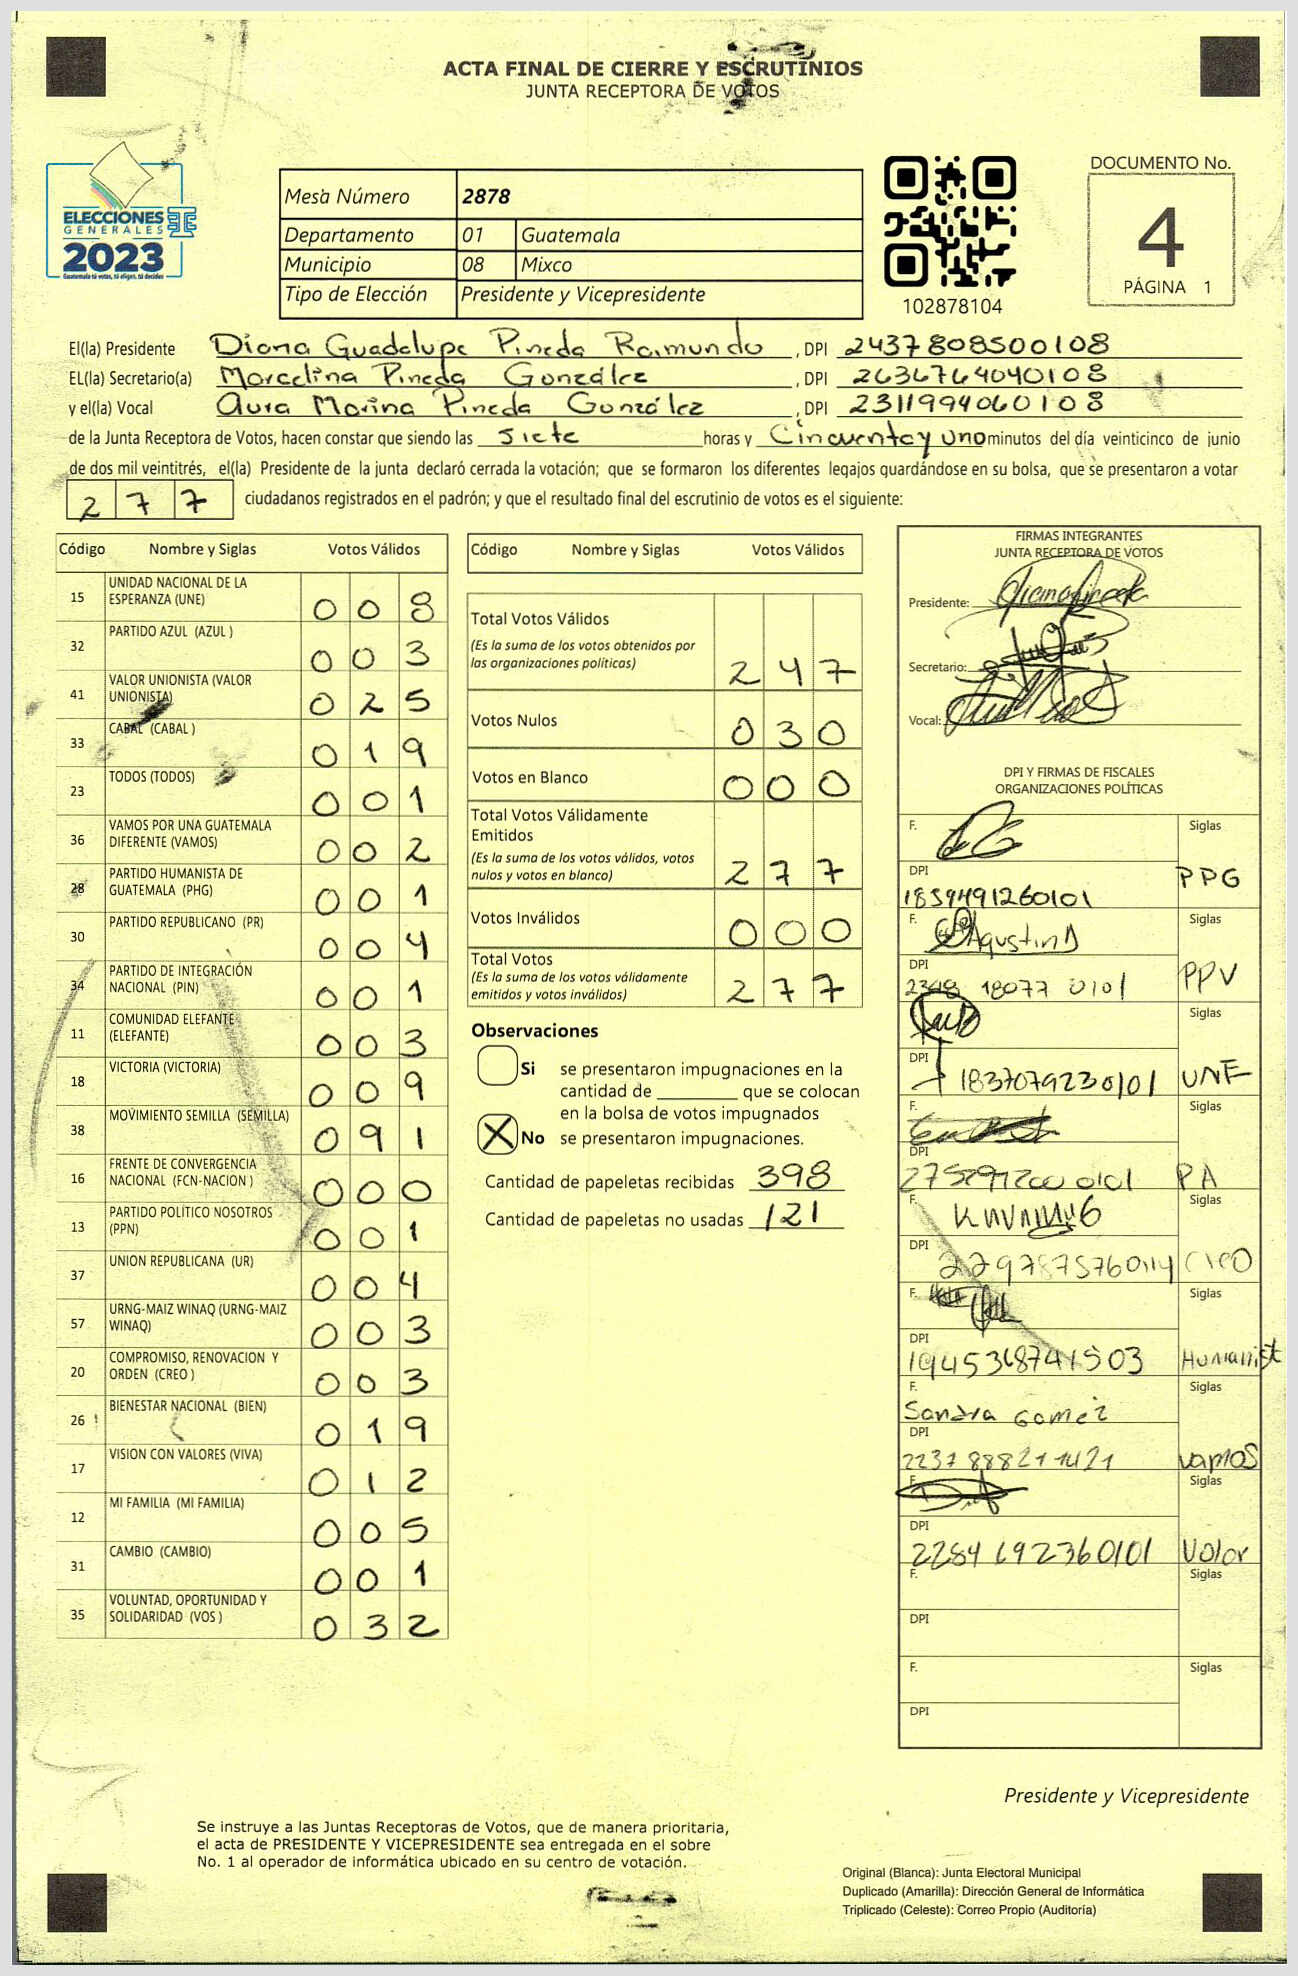 ACTA FINAL DE CIERRE Y ESCRUTINIOS
JUNTA RECEPTORA DE VOTOS
ELECCIONES
GENERALES
2023
Guatemala tú votas, tú eliges, tú decides
Mesa Número 2878
Departamento 01 Guatemala
Municipio 08 Mixco
Tipo de Elección Presidente y Vicepresidente
102878104
DOCUMENTO No.
4
PÁGINA 1
El(la) Presidente Diana Guadalupe Pineda Raimundo, DPI 2437808500108
EL(la) Secretario(a) Marcelina Pineda González, DPI 2636764040108
y el(la) Vocal Aura Marina Pineda González, DPI 2311994060108
de la Junta Receptora de Votos, hacen constar que siendo las siete horas y Cincuenta y uno minutos del día veinticinco de junio
de dos mil veintitrés, el(la) Presidente de la junta declaró cerrada la votación; que se formaron los diferentes legajos guardándose en su bolsa, que se presentaron a votar
277 ciudadanos registrados en el padrón; y que el resultado final del escrutinio de votos es el siguiente:
Código Nombre y Siglas Votos Válidos
15 UNIDAD NACIONAL DE LA ESPERANZA (UNE) 008
32 PARTIDO AZUL (AZUL ) 003
41 VALOR UNIONISTA (VALOR UNIONISTA) 025
33 CABAL (CABAL ) 019
23 TODOS (TODOS) 001
36 VAMOS POR UNA GUATEMALA DIFERENTE (VAMOS) 002
28 PARTIDO HUMANISTA DE GUATEMALA (PHG) 001
30 PARTIDO REPUBLICANO (PR) 004
34 PARTIDO DE INTEGRACIÓN NACIONAL (PIN) 001
11 COMUNIDAD ELEFANTE (ELEFANTE) 003
18 VICTORIA (VICTORIA) 009
38 MOVIMIENTO SEMILLA (SEMILLA) 091
16 FRENTE DE CONVERGENCIA NACIONAL (FCN-NACION ) 000
13 PARTIDO POLÍTICO NOSOTROS (PPN) 001
37 UNION REPUBLICANA (UR) 004
57 URNG-MAIZ WINAQ (URNG-MAIZ WINAQ) 003
20 COMPROMISO, RENOVACION Y ORDEN (CREO ) 003
26 BIENESTAR NACIONAL (BIEN) 019
17 VISION CON VALORES (VIVA) 012
12 MI FAMILIA (MI FAMILIA) 005
31 CAMBIO (CAMBIO) 001
35 VOLUNTAD, OPORTUNIDAD Y SOLIDARIDAD (VOS ) 032
Código Nombre y Siglas Votos Válidos
Total Votos Válidos
(Es la suma de los votos obtenidos por las organizaciones politicas) 247
Votos Nulos 030
Votos en Blanco 000
Total Votos Válidamente Emitidos
(Es la suma de los votos válidos, votos nulos y votos en blanco) 277
Votos Inválidos 000
Total Votos
(Es la suma de los votos válidamente emitidos y votos inválidos) 277
Observaciones
Si se presentaron impugnaciones en la
cantidad de ________ que se colocan
en la bolsa de votos impugnados
X No se presentaron impugnaciones.
Cantidad de papeletas recibidas 398
Cantidad de papeletas no usadas 121
FIRMAS INTEGRANTES
JUNTA RECEPTORA DE VOTOS
Presidente:
Secretario:
Vocal:
DPI Y FIRMAS DE FISCALES
ORGANIZACIONES POLÍTICAS
F. Siglas
DPI 1859491260101 PPG
F. Agustin Siglas
DPI 2348 18077 0101 PPV
F. Siglas
DPI 1837079230101 UNE
F. Siglas
DPI PA
F. Siglas
DPI Creo
F. Siglas
DPI 1945368741503 Humanist
F. Sandra Gomez Siglas
DPI 2237 88821 1421 vamos
F. Siglas
DPI 2284692360101 Valor
F. Siglas
DPI
F. Siglas
DPI
Presidente y Vicepresidente
Se instruye a las Juntas Receptoras de Votos, que de manera prioritaria,
el acta de PRESIDENTE Y VICEPRESIDENTE sea entregada en el sobre
No. 1 al operador de informática ubicado en su centro de votación.
Original (Blanca): Junta Electoral Municipal
Duplicado (Amarilla): Dirección General de Informática
Triplicado (Celeste): Correo Propio (Auditoría)